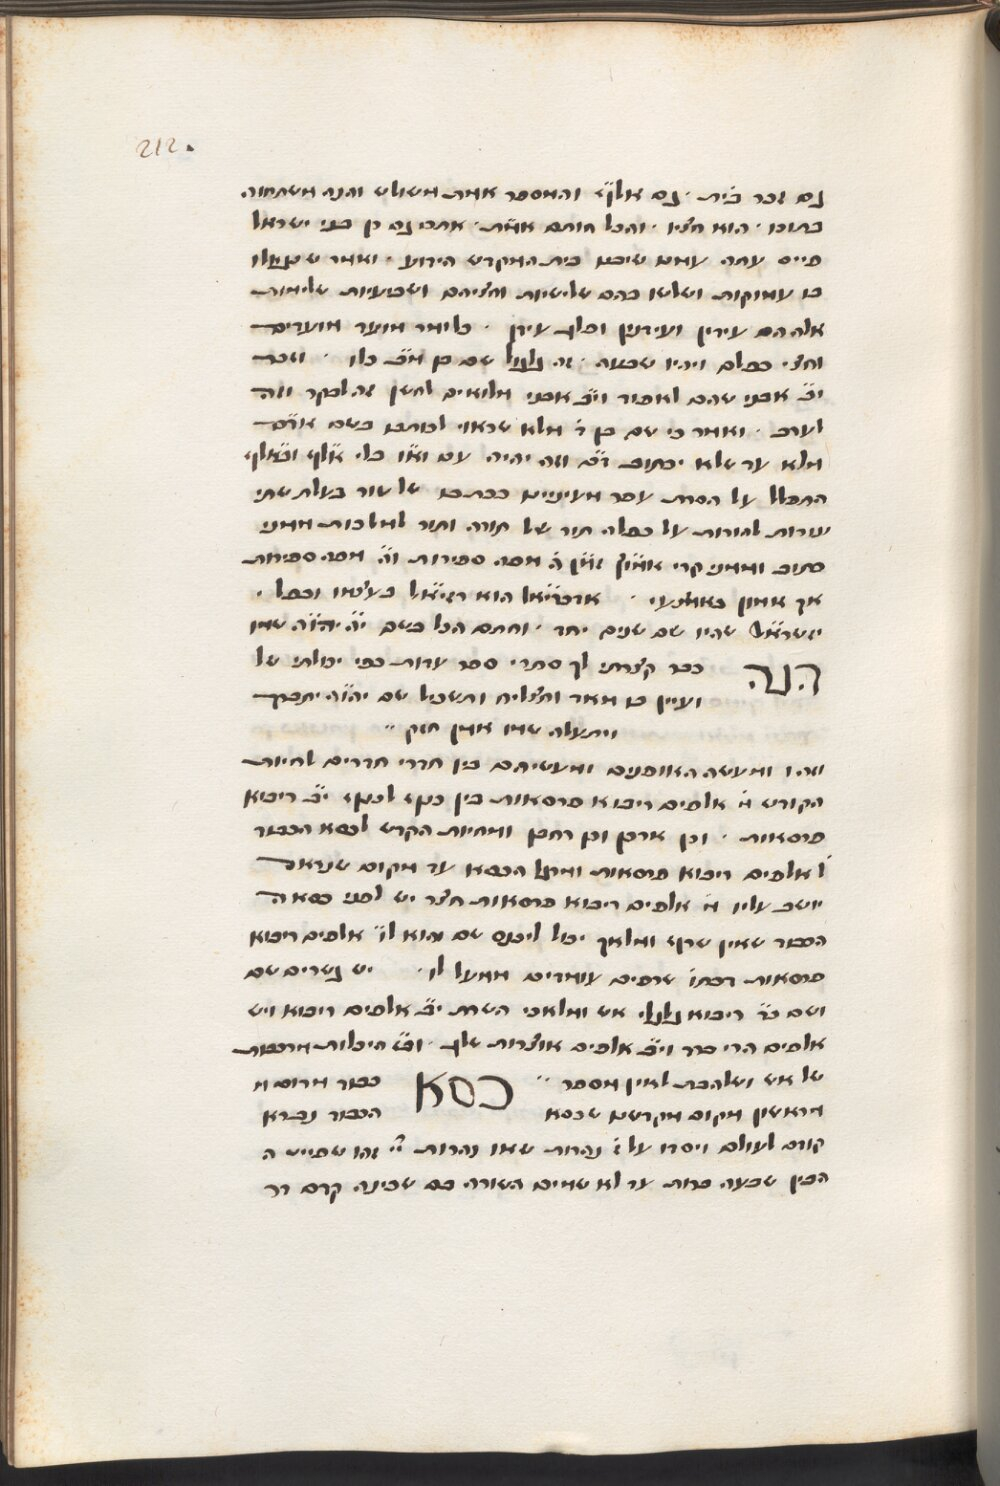 212.
גם זכר בי֗ת · גם אל״ף והמספר אמת משולש והנה משתחוה
בתוכו · הוא חציו · והכל חותם אמ״ת · אתכ גם כן בני ישראל
סיים עתה עמם שיכנו בית המקדש הידוע · ואמר שנגלו
בו עמוקות ושלשו בהם שלישיות וחציהם ושבועיות שלימות
אלה הם עירין ועידנין ופלג עידן · כלומר מועד מועדים
וחצי כפלם ויהיו שבעה · זה גלגל שם בן מ״ב כלו · וזכר
י״ב אבני שהם לאפוד וי״ב אבני מלואים לחשן זה לבקר וזה
לערב · ואמר כי שם בן ד֗ מלא שראוי לכותבו בשם אד״ם
מלא עד שלא יכתוב ד״ם וזה יהיה עם וא״ו בלי אל״ף ובאל״ף
התפלל על הסרת עפר מעינים ככתבו של שור בעלת שתי
יערות להורות על כפלה תור של תורה ותור למלכות ממני
כתוב וממני קרי אמ״ן זמ״ן ה֗ מפה ספירות וה֗ מפה ספירות
אך אמון באמצעי · אדברי״אל הוא רזי״אל בעצמו וכפל י
ישרא״ל שהיו שם שנים יחד · וחתם הכל בשם י״ה יהו״ה שמו
הנה כבר קצרתי לך סתרי ספר עדות כפי יכולתי של
ועיין בו מאד ותצליח ותשכיל שם יהו״ה יתברך
ויתעלה שמו אמן חזק ״
וזהו ומעשה האופנים ומעשיהם בין חדרי חדרים לחיות
הקודש מ֗ אלפים ריבוא פרסאות בין כנף לכנף י״ב ריבוא
פרסאות · וכן ארכן וכן רחבן ומחיות הקדש לכסא הכבוד
ל֗ אלפים ריבוא פרסאות ומרגל הכסא עד מקום שנראה
יושב עליו מ֗ אלפים ריבוא פרסאות חצר יש לפני כסא ה
הכבוד שאין שרף ומלאך יכול ליכנס שם והוא ל״ו אלפים ריבוא
פרסאות דכתו֗ שרפים עומדים ממעל לו · יש נשרים שם
ושם כ״ד ריבוא גלגלי אש ומלאכי השרת י״ב אלפים ריבוא ויש
אלפים הרי ברד וי״ב אלפים אוצרות שלג · וכ֗ היכלות מרכבות
של אש ושלהבת לאין מספר ״ כסא כבוד מרום מ
מראשון מקום מקדשנו שכסא הכבוד נברא
קודם לעולם ויסדו על ז֗ נהרות שאו נהרות יי֗ זהו שסיים ה
הבין שבעה כרות עד לא שמים השורה בם שכינה קדם דר